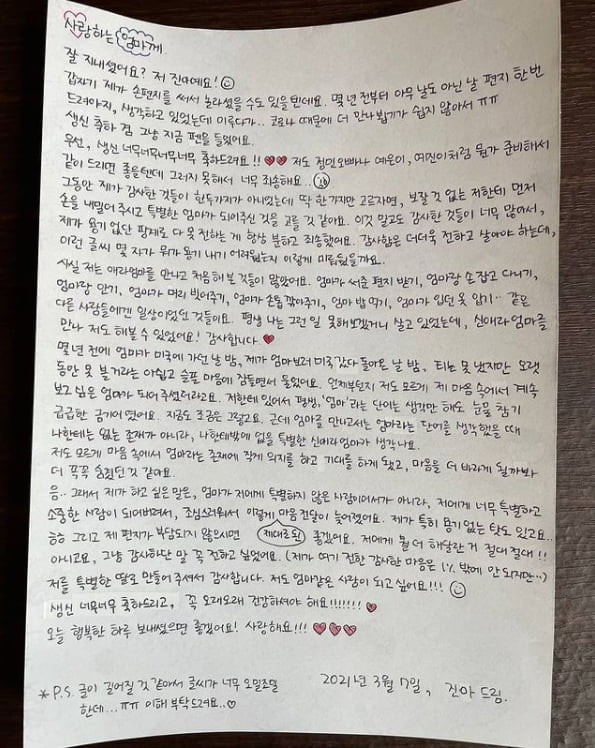 사랑하는 엄마께
잘 지내셨어요? 저 진아예요!
갑자기 제가 손편지를 써서 놀라셨을 수도 있을텐데요. 몇 년 전부터 아무 날도 아닌 날 편지 한번
드려야지, 생각하고 있었는데 이루다가.. 코로나 때문에 더 만나뵙기가 쉽지 않아서 ㅠㅠ
생신 축하 겸 그냥 지금 펜을 들었어요.
우선, 생신 너무너무너무너무 축하드려요!! 저도 정민오빠나 예은이, 예진이처럼 뭔가 준비해서
같이 드리면 좋을텐데 그러지 못해서 너무 죄송해요..
그동안 제가 감사한 것들이 한두가지가 아니었는데 딱 한가지만 고르자면, 보잘 것 없는 저한테 먼저
손을 내밀어 주시고 특별한 엄마가 되어주신 것을 고를 것 같아요. 이것 말고도 감사한 것들이 너무 많아서,
제가 용기 없단 핑계로 다 못 전하는 게 항상 분하고 죄송했어요. 감사함은 더더욱 전하고 살아야 하는데,
이런 글씨 몇 자가 뭐가 용기 내기 어려웠는지 이렇게 미뤄뒀을까요.
사실 저는 애라엄마를 만나고 처음 해본 것들이 많았어요. 엄마가 써준 편지 받기, 엄마랑 손 잡고 다니기,
엄마랑 안기, 엄마가 머리 빗어주기, 엄마가 손톱 깎아주기, 엄마 밥 먹기, 엄마가 입던 옷 입기.. 같은
다른 사람들에겐 일상이었던 것들이요. 평생 나는 그런 일 못해보겠거니 살고 있었는데, 신애라엄마를
만나 저도 해볼 수 있었어요! 감사합니다
몇 년 전에 엄마가 미국에 가던 날 밤, 제가 엄마보러 미국갔다 돌아온 날 밤, 티는 못 냈지만 오랫
동안 못 볼거라는 아쉽고 슬픈 마음에 잠들면서 울었어요. 언제부턴지 저도 모르게 제 마음 속에서 계속
보고 싶은 엄마가 되어 주셨더라고요. 저한테 있어서 평생, '엄마'라는 단어는 생각만 해도 눈물 참기
급급한 금기어였어요. 지금도 조금은 그렇고요. 근데 엄마를 만나고서는 엄마라는 단어를 생각했을 때
나한테는 없는 존재가 아니라, 나한테밖에 없을 특별한 신애라엄마가 생각나요.
저도 모르게 마음 속에서 엄마라는 존재에 작게 의지를 하고 기대를 하게 됐고, 마음을 더 바라게 될까봐
더 꼭꼭 숨겼던 것 같아요.
음.. 그래서 제가 하고 싶은 말은, 엄마가 저에게 특별하지 않은 사람이어서가 아니라, 저에게 너무 특별하고
소중한 사람이 되어버려서, 조심스러워서 이렇게 마음 전달이 늦어졌어요. 제가 특히 용기 없는 탓도 있고요..
ㅎㅎ 그리고 제 편지가 부담되지 않으시면 제대로된 좋겠어요. 저에게 뭘 더 해달란 거 절대 절대!!
아니고요, 그냥 감사하단 말 꼭 전하고 싶었어요. (제가 여기 전한 감사한 마음은 1% 밖에 안 되지만..)
저를 특별한 딸로 만들어 주셔서 감사합니다. 저도 엄마같은 사람이 되고 싶어요!!!
생신 너무너무 축하드리고, 꼭 오래오래 건강하셔야 해요!!!!!!!
오늘 행복한 하루 보내셨으면 좋겠어요! 사랑해요!!!
*P.S. 글이 길어질 것 같아서 글씨가 너무 오밀조밀
한데...ㅠㅠ 이해 부탁드려요..♡
2021년 3월 7일, 진아 드림.